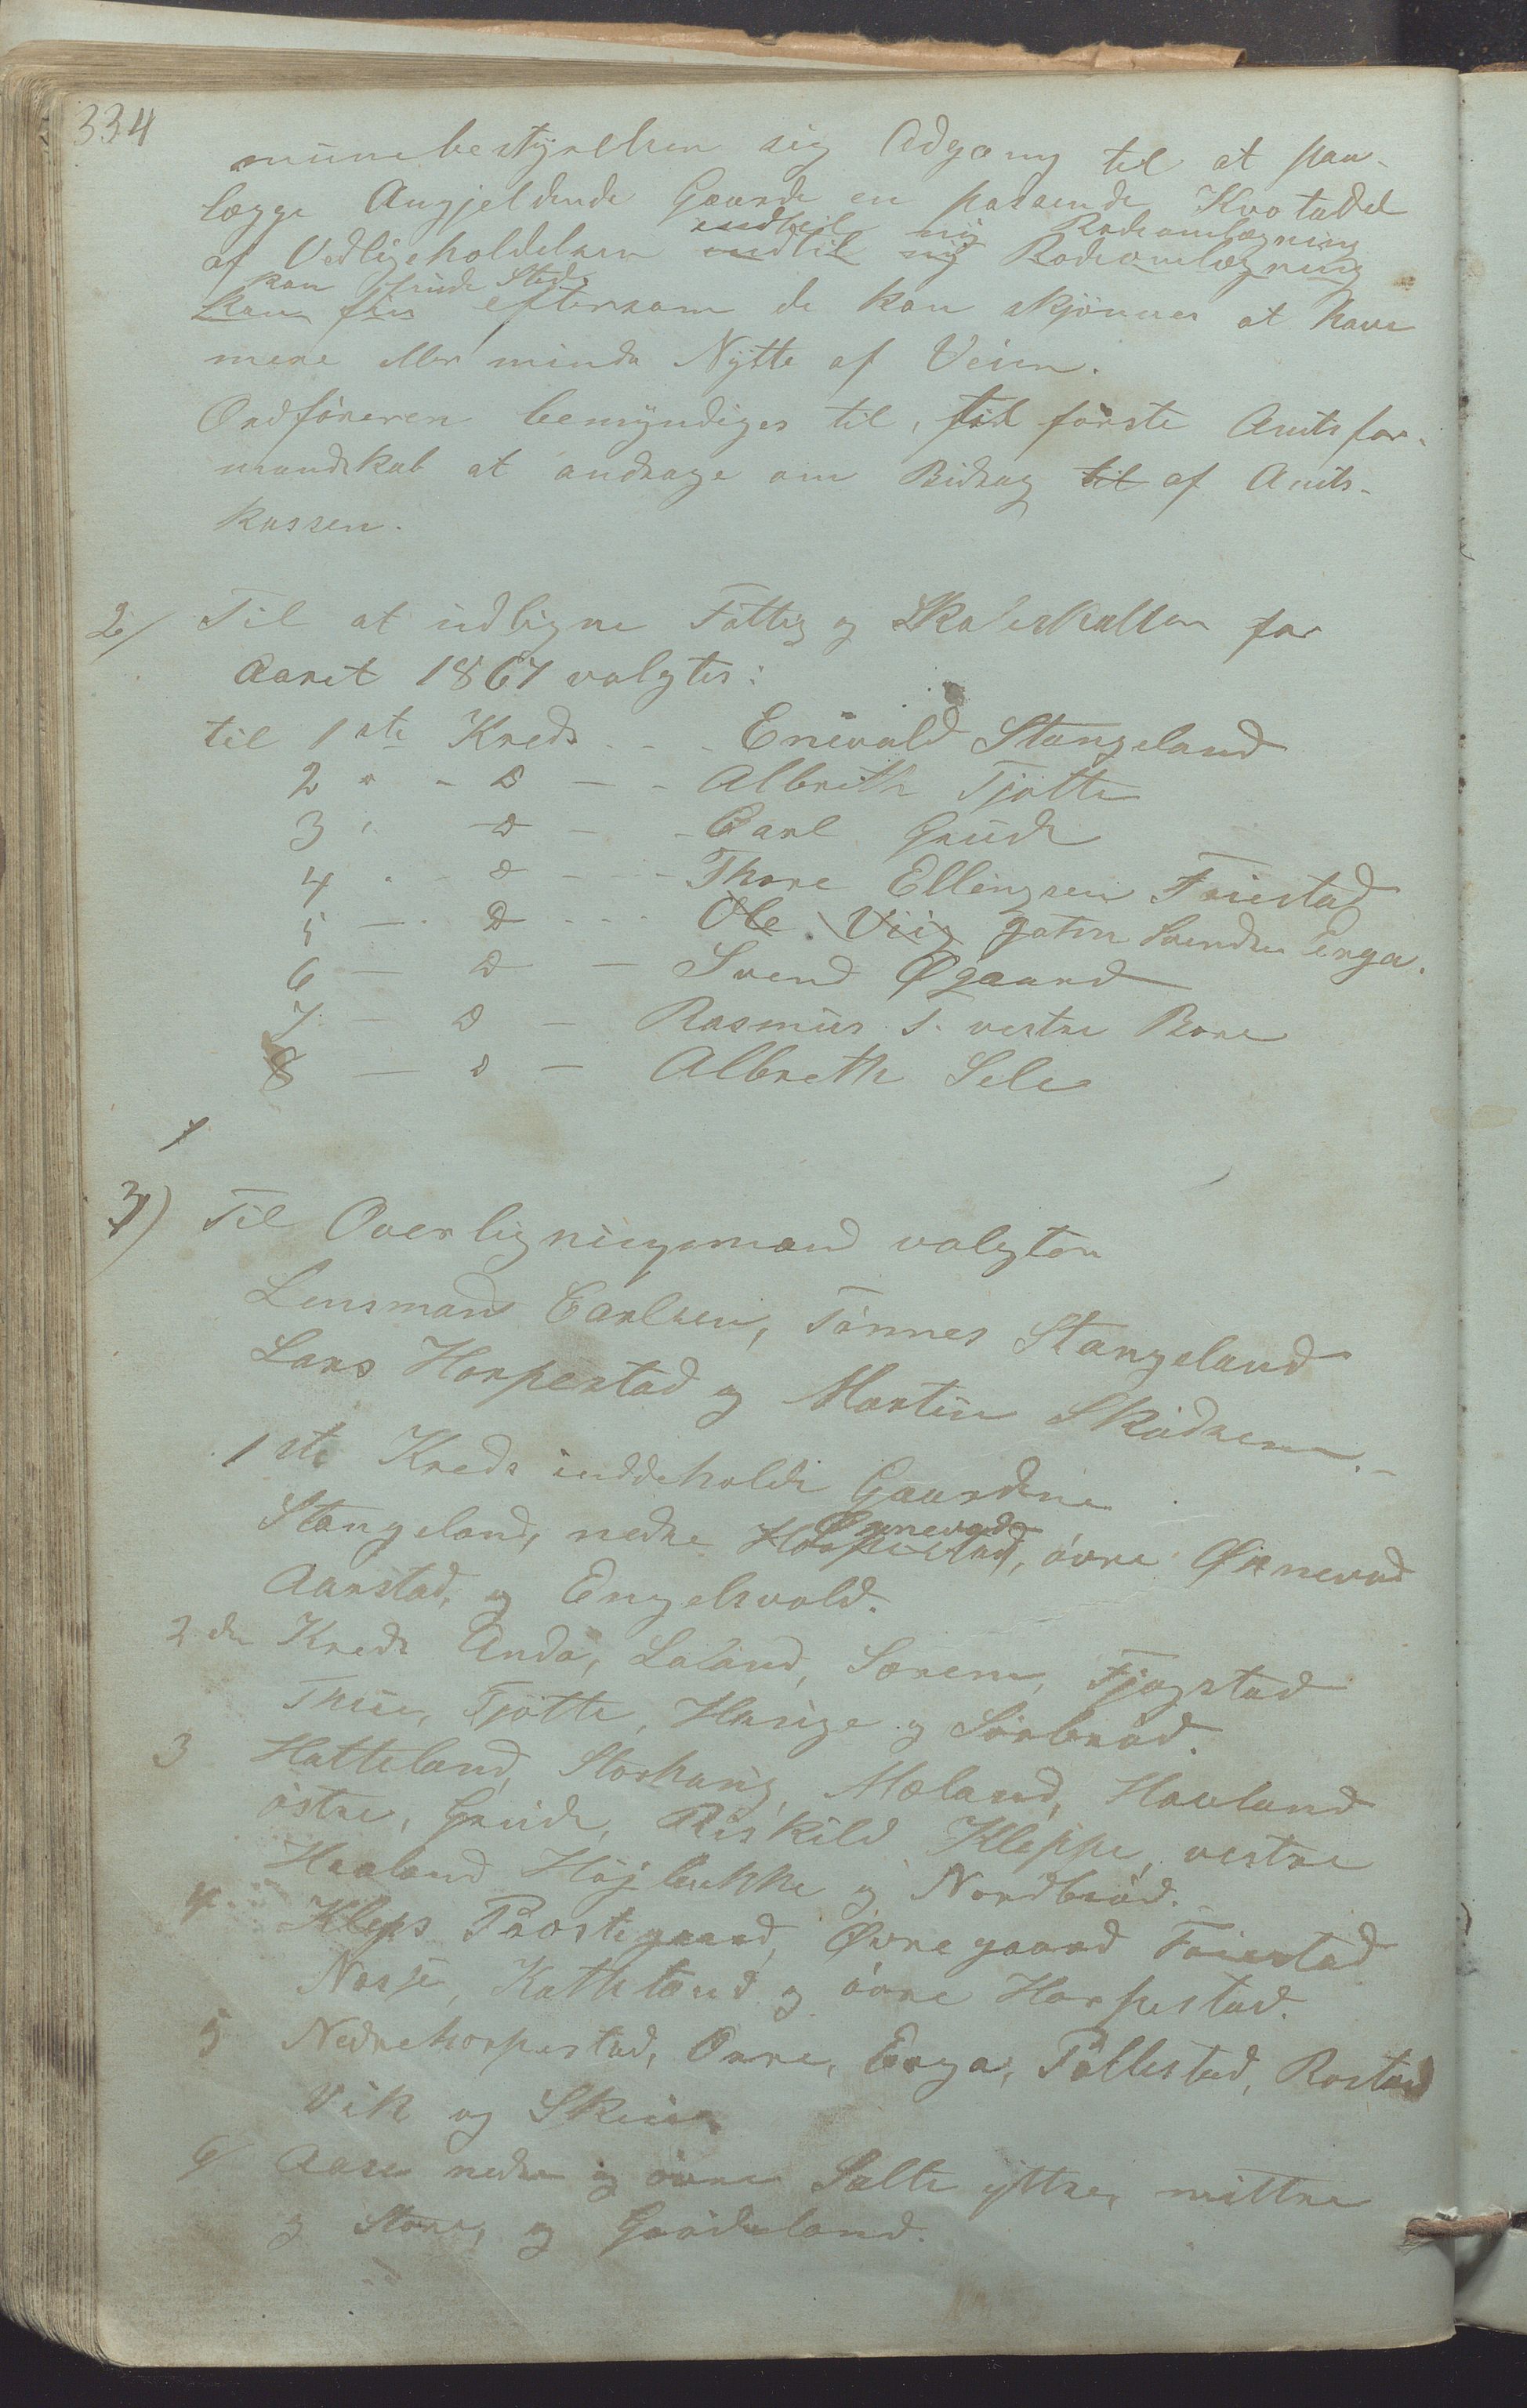 334
munebestÿrelsen sig Adgang til at paa-
lægge Angjeldende Gaarde en passende Kvotadel
indtil nÿ Rodeomlægning
af Vedligeholdelsen indtil nÿ Rodeomlægning
kan finde Sted
kan fin eftersom de kan skjønnes at have
mere eller mindre Nÿtte af Veien.
Ordføreren bemÿndiges til, til første Amtsfor-
mandskab at andrage om Bidrag til af Amts-
kassen.
2/ Til at udligne Fattig og Skoleskatten for
Aaret 1867 valgtes:
til 1ste Kreds - - - Enevald Stangeland
2 " - D - - Albrith Tjøtte
3 " D - - Carl Grude
4 - - D - - - Thore Ellingsen Friestad
5 - - D - - - Ole Viig Svendsen Erga.
6 - D - Svend Øgaard
7 - D - Rasmus T. vestre Bore
8 - D - Albreth Sele
3) Til Overligningsmænd valgtes
Lensmand Carlsen, Tönnes Stangeland
Lars Horpestad og Martin Skadsem.-
1ste Kreds indeholder Gaardene
Øxnevad
Stangeland, nedre Horpestad, øvre Øxnevad
Aarstad, og Engelsvold.
2den Kreds Anda, Laland, Særem, Fjogstad
Thue, Tjøtte, Hauge og Sørbraad.
3 Hatteland, Storhaug, Mæland, Haaland
østre, Grude, Riskild Kleppe, vestre
Haaland Højbakke og Nordbraad.
4. Kleps Præstegaard, Øvregaard Friestad
Nasje, Kathland og øvre Horpestad.
5 Nedrehorpestad, Orre, Erga, Pollestad, Rostad
Vik og Skeie
6/ Aase nedre og øvre Salte ÿttre, mittre
og Store, og Grødeland.